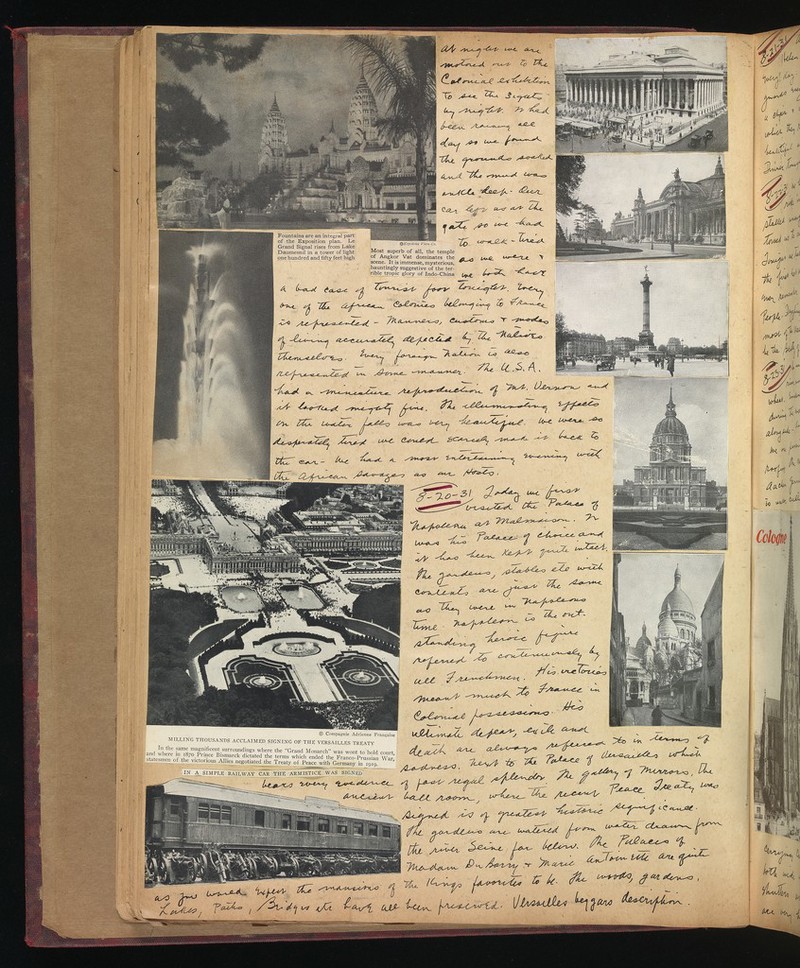 At night we are
motored out to the
Colonial exhibition
to see the Sights
by night. It had
been raining all
day so we found
the grounds soaked
and the mud was
ankle deep. Our
car left us at the
gate so we had
to walk - tired
as we were &
we both have
a bad case of tourist foot tonight. Every
one of the African Colonies belonging to France
is represented - Manners, customs & modes
of living accurately depicted by the Natives
themselves. Every foreign Nation is also
represented in some manner. The U.S.A.
had a miniature reproduction of Mt. Vernon and
it looked mighty fine. The illuminating effects
on the water falls was very beautiful. We were so
desperately tired we could scarcely make it back to
the car - We had a most entertaining evening with
the African Savages as our Hosts.
Fountains are an integral part
of the Exposition plan. Le
Grand Signal rises from Lake
Daumesnil in a tower of light
one hundred and fifty feet high
Most superb of all, the temple
of Angkor Vat dominates the
scene. It is immense, mysterious,
hauntingly suggestive of the ter-
rible tropic glory of Indo-China
8-20-31 Today we first
visited the Palace of
Napoleon at Malmaison. It
was his Palace of choice and
it has been kept quite intact.
The gardens, stables etc with
contents are just the same
as they were in Napoleons
time. Napoleon is the out-
standing heroic figure
referred to continuously by
all Frenchmen. His victories
meant much to France in
Colonial possessions. His
ultimate defeat, exile and
death are always referred to in terms of
sadness. Next to the Palace of Versailles which
bears every evidence of past regal splendor. The gallery of Mirrors, the
ancient ball room, where the recent Peace Treaty was
signed is of greatest historic significance.
The gardens are watered from water drawn from
the river Seine far below. The Palaces of
Madam Du Barry & Marie Antoinette are quite
as you would expect the mansions of the Kings favorites to be. The woods, gardens,
Lakes, Paths, Bridges etc have all been preserved. Versailles beggars description.
© Compagnie Aérienne Française
MILLING THOUSANDS ACCLAIMED SIGNING OF THE VERSAILLES TREATY
In the same magnificent surroundings where the "Grand Monarch" was wont to hold court,
and where in 1870 Prince Bismarck dictated the terms which ended the Franco-Prussian War,
statesmen of the victorious Allies negotiated the Treaty of Peace with Germany in 1919.
IN A SIMPLE RAILWAY CAR THE ARMISTICE WAS SIGNED
8-21-31
8-22-3
8-23-3
Cologne